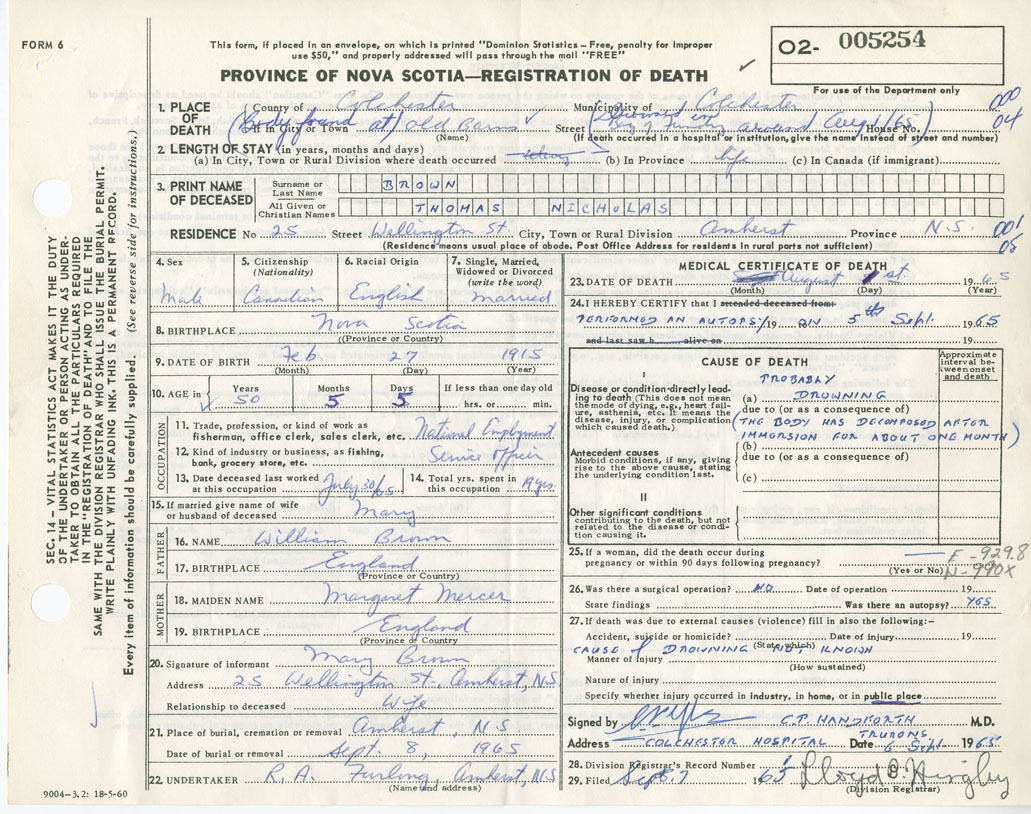 FORM 6
This form, if placed in an envelope, on which is printed "Dominion Statistics – Free, penalty for improper
use $50," and properly addressed will pass through the mail "FREE"
PROVINCE OF NOVA SCOTIA—REGISTRATION OF DEATH
O2- 005254
For use of the Department only
1. PLACE OF DEATH
County of Colchester Municipality of Colchester
000
04
(Body found at) Old Barns
If in City or Town (Name) Street House No.
Bay of Fundy around Aug 1/65
(If death occurred in a hospital or institution, give the name instead of street and number)
2. LENGTH OF STAY (in years, months and days)
(a) In City, Town or Rural Division where death occurred (b) In Province life (c) In Canada (if immigrant)
3. PRINT NAME OF DECEASED
Surname or Last Name BROWN
All Given or Christian Names THOMAS NICHOLAS
RESIDENCE No 25 Street Wellington St. City, Town or Rural Division Amherst Province N.S.
001
05
(Residence means usual place of abode. Post Office Address for residents in rural parts not sufficient)
4. Sex
Male
5. Citizenship
(Nationality)
Canadian
6. Racial Origin
English
7. Single, Married,
Widowed or Divorced
(write the word)
married
8. BIRTHPLACE Nova Scotia
((Province or Country)
9. DATE OF BIRTH Feb 27 1915
(Month) (Day) (Year)
10. AGE in
Years 50
Months 5
Days 5
If less than one day old
hrs. or min.
OCCUPATION
11. Trade, profession, or kind of work as
fisherman, office clerk, sales clerk, etc. National Employment
12. Kind of industry or business, as fishing,
bank, grocery store, etc. Service Officer
13. Date deceased last worked
at this occupation July 30/65
14. Total yrs. spent in
this occupation 19 yrs.
15. If married give name of wife
or husband of deceased Mary
FATHER
16. NAME William Brown
17. BIRTHPLACE England
(Province or Country)
MOTHER
18. MAIDEN NAME Margaret Mercer
19. BIRTHPLACE England
(Province or Country)
20. Signature of informant Mary Brown
Address 25 Wellington St., Amherst, NS
Relationship to deceased Wife
21. Place of burial, cremation or removal Amherst, N.S.
Date of burial or removal Sept. 8, 1965
22. UNDERTAKER R. A. Furlong, Amherst, NS
(Name and address)
MEDICAL CERTIFICATE OF DEATH
23. DATE OF DEATH August 1st. 1965
(Month) (Day) (Year)
24. I HEREBY CERTIFY that I attended deceased from
PERFORMED AN AUTOPSY 19 ON 5th Sept. 1965
and last saw h alive on 19
CAUSE OF DEATH
Approximate
interval be-
tween onset
and death
I
Disease or condition directly lead-
ing to death (This does not mean
the mode of dying, e.g., heart fail-
ure, asthenia, etc. It means the
disease, injury, or complication
which caused death.)
PROBABLY
(a) DROWNING
due to (or as a consequence of)
(THE BODY HAS DECOMPOSED AFTER
IMMERSION FOR ABOUT ONE MONTH)
Antecedent causes
Morbid conditions, if any, giving
rise to the above cause, stating
the underlying condition last.
(b)
due to (or as a consequence of)
(c)
II
Other significant conditions
contributing to the death, but not
related to the disease or condi-
tion causing it.
25. If a woman, did the death occur during
pregnancy or within 90 days following pregnancy?
(Yes or No)
E-929.8
N-990X
26. Was there a surgical operation? NO Date of operation 19
State findings Was there an autopsy? YES
27. If death was due to external causes (violence) fill in also the following:–
Accident, suicide or homicide? Date of injury 19
(State which)
CAUSE OF DROWNING NOT KNOWN
Manner of injury
(How sustained)
Nature of injury
Specify whether injury occurred in industry, in home, or in public place
Signed by C.P. HANDFORTH M.D.
TRURO NS
Address COLCHESTER HOSPITAL Date 6 Sept. 1965
28. Division Registrar's Record Number
29. Filed Sept. 7 1965 Lloyd
(Division Registrar)
SEC. 14 – VITAL STATISTICS ACT MAKES IT THE DUTY
OF THE UNDERTAKER OR PERSON ACTING AS UNDER-
TAKER TO OBTAIN ALL THE PARTICULARS REQUIRED
IN THE "REGISTRATION OF DEATH" AND TO FILE THE
SAME WITH THE DIVISION REGISTRAR WHO SHALL ISSUE THE BURIAL PERMIT.
WRITE PLAINLY WITH UNFADING INK. THIS IS A PERMANENT RECORD.
Every item of information should be carefully supplied. (See reverse side for instructions.)
9004-3.2: 18-5-60